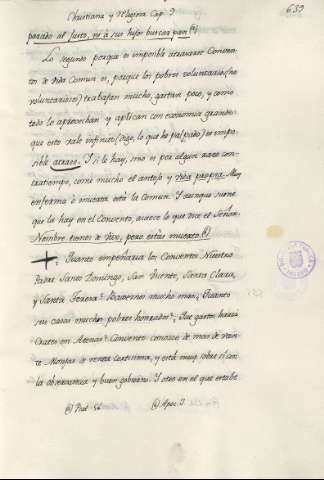 Christiana y Religiosa Cap. 9 639
parado al Justo, ni a sus hijos buscar pan (a)
Lo segundo porque es imposible atrasarse Conven-
tos de Vida Comun es, porque los pobres voluntarios (no
voluntariosos) trabajan mucho, gastan poco, y como
todo lo aprovechan y aplican con economía grande
que esto vale infinito (digo, lo que he palpado) es impo-
sible atraso. Y si le hay, sino es por algun raro con-
tratiempo, comè mucho el antojo y vida propria. Muy
enferma ò imitada està la Comun. Y aunque suene
que la hay en el Convento, acaece lo que dice el Señor:
Nombre tienes de vivo, pero estàs muerto. (b)
Quanto empeñaria los Conventos Nuestro
Padre Santo Domingo, San Vicente, Santa Clara,
y Santa Teresa? Pusieron mucho mas; Quanto
sus casas muchos pobres honrados? Que gastos haria
Convento conozco de mas de vein-
te Monjas de renta cortissima, y està muy sobre sì con
la observancia y buen gobierno. Y otro en el que estube
(a) Psal. 36 (b) Apoc. 3.